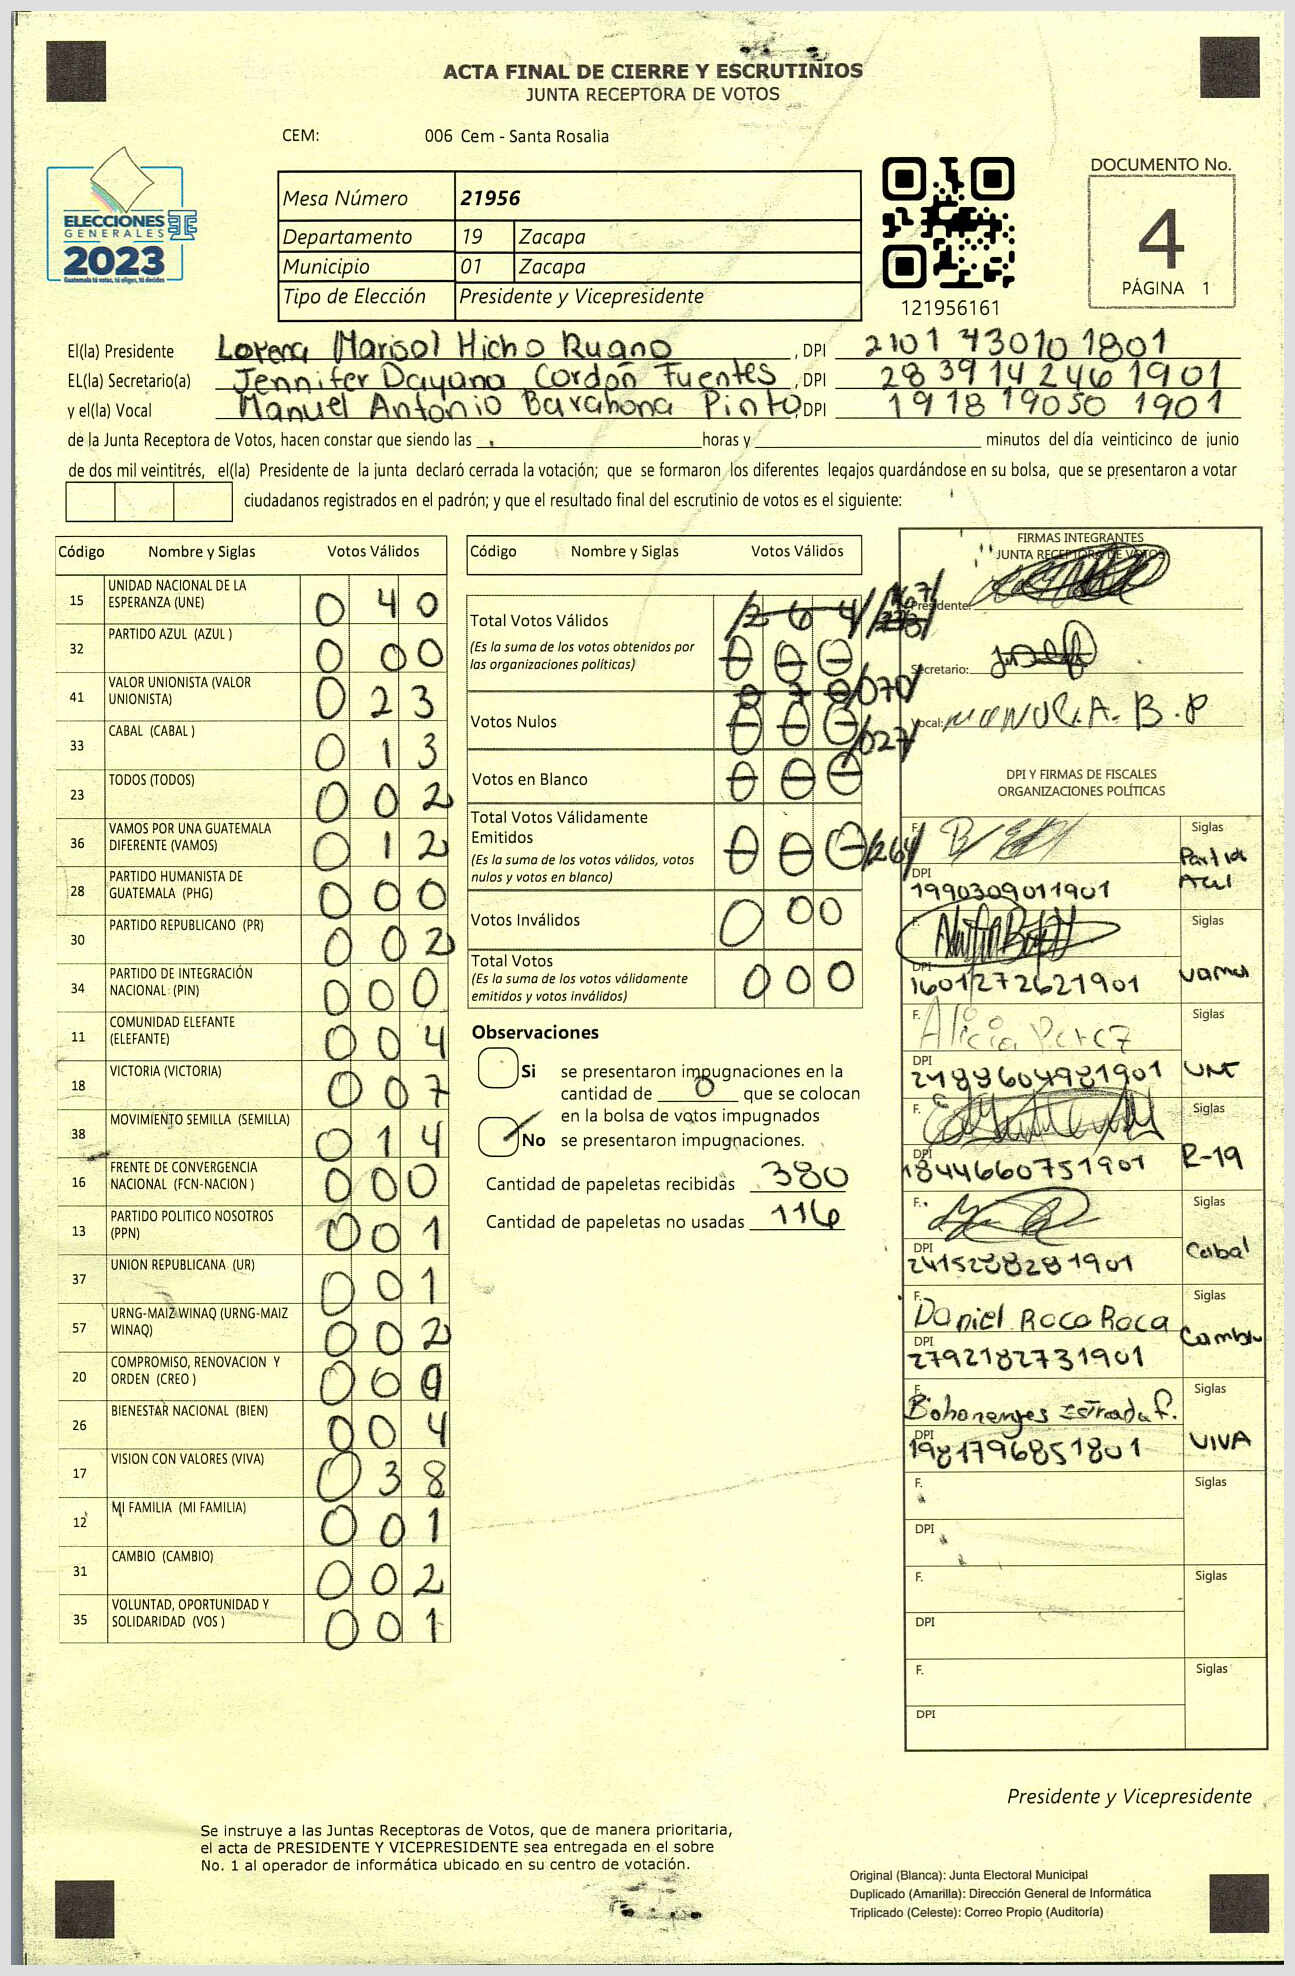 ACTA FINAL DE CIERRE Y ESCRUTINIOS
JUNTA RECEPTORA DE VOTOS
CEM: 006 Cem - Santa Rosalia
ELECCIONES
GENERALES
2023
Guatemala tú votas, tú eliges, tú decides
Mesa Número 21956
Departamento 19 Zacapa
Municipio 01 Zacapa
Tipo de Elección Presidente y Vicepresidente
121956161
DOCUMENTO No.
4
PÁGINA 1
El(la) Presidente Lorena Marisol Hicho Ruano, DPI 2101 43010 1801
EL(la) Secretario(a) Jennifer Dayana Cordón Fuentes, DPI 2839142461901
y el(la) Vocal Manuel Antonio Barahona Pinto, DPI 1918 19050 1901
de la Junta Receptora de Votos, hacen constar que siendo las horas y minutos del día veinticinco de junio
de dos mil veintitrés, el(la) Presidente de la junta declaró cerrada la votación; que se formaron los diferentes legajos guardándose en su bolsa, que se presentaron a votar
ciudadanos registrados en el padrón; y que el resultado final del escrutinio de votos es el siguiente:
Código Nombre y Siglas Votos Válidos
15 UNIDAD NACIONAL DE LA ESPERANZA (UNE) 0 4 0
32 PARTIDO AZUL (AZUL ) 0 0 0
41 VALOR UNIONISTA (VALOR UNIONISTA) 0 2 3
33 CABAL (CABAL ) 0 1 3
23 TODOS (TODOS) 0 0 2
36 VAMOS POR UNA GUATEMALA DIFERENTE (VAMOS) 0 1 2
28 PARTIDO HUMANISTA DE GUATEMALA (PHG) 0 0 0
30 PARTIDO REPUBLICANO (PR) 0 0 2
34 PARTIDO DE INTEGRACIÓN NACIONAL (PIN) 0 0 0
11 COMUNIDAD ELEFANTE (ELEFANTE) 0 0 4
18 VICTORIA (VICTORIA) 0 0 7
38 MOVIMIENTO SEMILLA (SEMILLA) 0 1 4
16 FRENTE DE CONVERGENCIA NACIONAL (FCN-NACION ) 0 0 0
13 PARTIDO POLITICO NOSOTROS (PPN) 0 0 1
37 UNION REPUBLICANA (UR) 0 0 1
57 URNG-MAIZ WINAQ (URNG-MAIZ WINAQ) 0 0 2
20 COMPROMISO, RENOVACION Y ORDEN (CREO ) 0 0
26 BIENESTAR NACIONAL (BIEN) 0 0 4
17 VISION CON VALORES (VIVA) 0 3 8
12 MI FAMILIA (MI FAMILIA) 0 0 1
31 CAMBIO (CAMBIO) 0 0 2
35 VOLUNTAD, OPORTUNIDAD Y SOLIDARIDAD (VOS ) 0 0 1
Código Nombre y Siglas Votos Válidos
Total Votos Válidos /264/ 167/
(Es la suma de los votos obtenidos por
las organizaciones políticas) 0 0 0
070/
Votos Nulos 0 0 0
/027/
Votos en Blanco 0 0 0
Total Votos Válidamente
Emitidos 0 0 0 /264/
(Es la suma de los votos válidos, votos
nulos y votos en blanco)
Votos Inválidos 0 0 0
Total Votos 0 0 0
(Es la suma de los votos válidamente
emitidos y votos inválidos)
Observaciones
Si se presentaron impugnaciones en la
cantidad de 0 que se colocan
en la bolsa de votos impugnados
No se presentaron impugnaciones.
Cantidad de papeletas recibidas 380
Cantidad de papeletas no usadas 116
FIRMAS INTEGRANTES
JUNTA RECEPTORA DE VOTOS
Presidente:
Secretario:
Vocal: Manuel.A. B.P
DPI Y FIRMAS DE FISCALES
ORGANIZACIONES POLÍTICAS
F. Siglas
Partido
Azul
DPI
1990309011901
F. Siglas
DPI
1601272621901 vamos
F. Alicia Perez Siglas
DPI
2488604981901 UNE
F. Siglas
DPI
1844660751901 R-19
F. Siglas
DPI
2415288281901 Cabal
F. Daniel Roca Roca Siglas
Cambio
DPI
2792182731901
F. Estrada F. Siglas
DPI
1981796851801 VIVA
F. Siglas
DPI
F. Siglas
DPI
F. Siglas
DPI
Presidente y Vicepresidente
Se instruye a las Juntas Receptoras de Votos, que de manera prioritaria,
el acta de PRESIDENTE Y VICEPRESIDENTE sea entregada en el sobre
No. 1 al operador de informática ubicado en su centro de votación.
Original (Blanca): Junta Electoral Municipal
Duplicado (Amarilla): Dirección General de Informática
Triplicado (Celeste): Correo Propio (Auditoría)